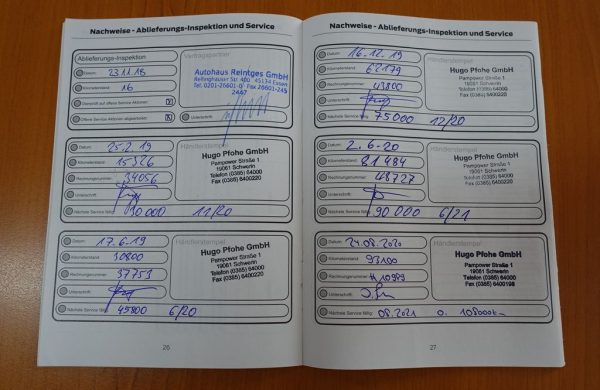 Nachweise - Ablieferungs-Inspektion und Service
Ablieferungs-Inspektion
Datum: 23.11.18
Kilometerstand: 16
Überprüft auf offene Service Aktionen:
Offene Service Aktionen abgearbeitet:
Vertragspartner
Autohaus Reintges GmbH
Rellinghauser Str. 400 45134 Essen
Tel. 0201-26601-0 Fax 26601-245
2467
Unterschrift
Datum: 25.2.19
Kilometerstand: 15326
Rechnungsnummer: 34056
Unterschrift:
Nächste Service fällig: 30000 11/20
Händlerstempel
Hugo Pfohe GmbH
Pampower Straße 1
19061 Schwerin
Telefon (0385) 64000
Fax (0385) 6400220
Datum: 17.6.19
Kilometerstand: 30800
Rechnungsnummer: 37753
Unterschrift:
Nächste Service fällig: 45800 6/20
Händlerstempel
Hugo Pfohe GmbH
Pampower Straße 1
19061 Schwerin
Telefon (0385) 64000
Fax (0385) 6400220
26
Nachweise - Ablieferungs-Inspektion und Service
Datum: 16.12.19
Kilometerstand: 62179
Rechnungsnummer: 43800
Unterschrift:
Nächste Service fällig: 75000 12/20
Händlerstempel
Hugo Pfohe GmbH
Pampower Straße 1
19061 Schwerin
Telefon (0385) 64000
Fax (0385) 6400220
Datum: 2.6.20
Kilometerstand: 81484
Rechnungsnummer: 48727
Unterschrift:
Nächste Service fällig: 90000 6/21
Händlerstempel
Hugo Pfohe GmbH
Pampower Straße 1
19061 Schwerin
Telefon (0385) 64000
Fax (0385) 6400220
Datum: 24.08.2020
Kilometerstand: 93100
Rechnungsnummer:
Unterschrift:
Nächste Service fällig: 08.2021 o. 108000
Händlerstempel
Hugo Pfohe GmbH
Pampower Straße 1
19061 Schwerin
Telefon (0385) 64000
Fax (0385) 6400198
27